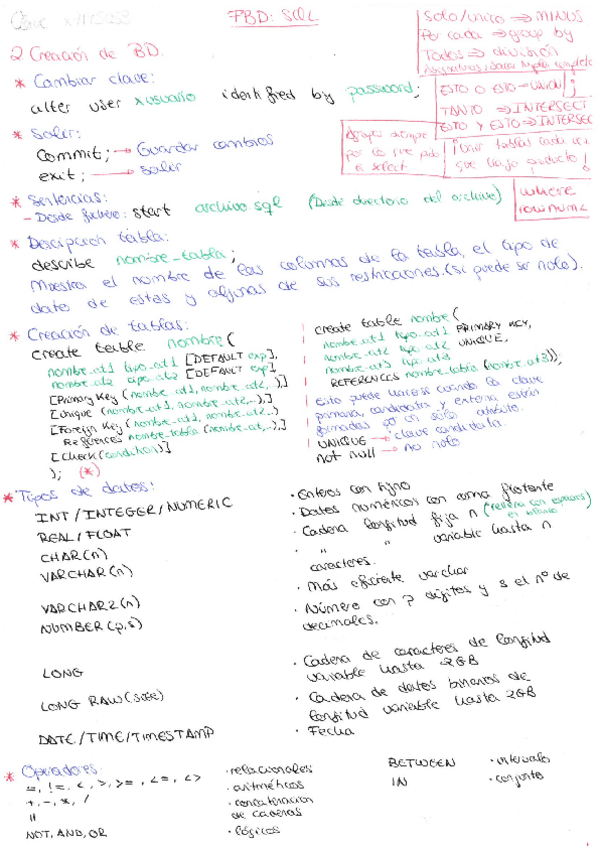 FBD: SQL
Solo/único ⇒ MINUS
Por cada ⇒ group by
Todos ⇒ división
ESTO O ESTO ⇒ UNION
TANTO ⇒ INTERSECT
ESTO Y ESTO ⇒ INTERSEC
Agrupar siempre
por lo que pide
el select
Unir tablas cada vez
que haga producto!
where
rownum
2 Creación de BD.
* Cambiar clave:
alter user xusuario identified by password;
* Salir:
Commit; → Guardar cambios
exit; → salir
* Sentencias:
- Desde fichero: start archivo.sql (Desde directorio del archivo)
* Descripción tabla:
describe nombre_tabla;
Muestra el nombre de las columnas de la tabla, el tipo de
dato de estas y algunas de sus restricciones. (si puede ser nulo).
* Creación de tablas:
create table nombre (
nombre_at1 tipo_at1 [DEFAULT exp],
nombre_at2 tipo_at2 [DEFAULT exp],
[Primary Key (nombre_at1, nombre_at2, ..)]
[Unique (nombre_at1, nombre_at2, ..)]
[Foreign Key (nombre_at1, nombre_at2, ..)
References nombre_tabla (nombre_at, ..)]
[Check (condicion)]
); (*)
create table nombre (
nombre_at1 tipo_at1 PRIMARY KEY,
nombre_at2 tipo_at2 UNIQUE,
nombre_at3 tipo_at3
REFERENCES nombre_tabla (nombre_at3));
Esto puede hacerse cuando la clave
primaria, candidata y externa están
formadas por un solo atributo.
UNIQUE → clave candidata.
not null → no nulo
* Tipos de datos:
INT / INTEGER / NUMERIC · Enteros con signo
REAL / FLOAT · Datos numéricos con coma flotante
CHAR(n) · Cadena longitud fija n (rellena con espacios en blanco)
VARCHAR(n) · " " variable hasta n
caracteres.
VARCHAR2(n) · Más eficiente varchar
NUMBER(p,s) · Número con p dígitos y s el nº de
decimales.
LONG · Cadena de caracteres de longitud
variable hasta 2GB
LONG RAW (size) · Cadena de datos binarios de
longitud variable hasta 2GB
DATE / TIME / TIMESTAMP · Fecha
* Operadores:
=, !=, <, >, >=, <=, <> · relacionales
+, -, *, / · aritméticos
|| · concatenación
de cadenas
NOT, AND, OR · lógicos
BETWEEN · intervalo
IN · conjunto